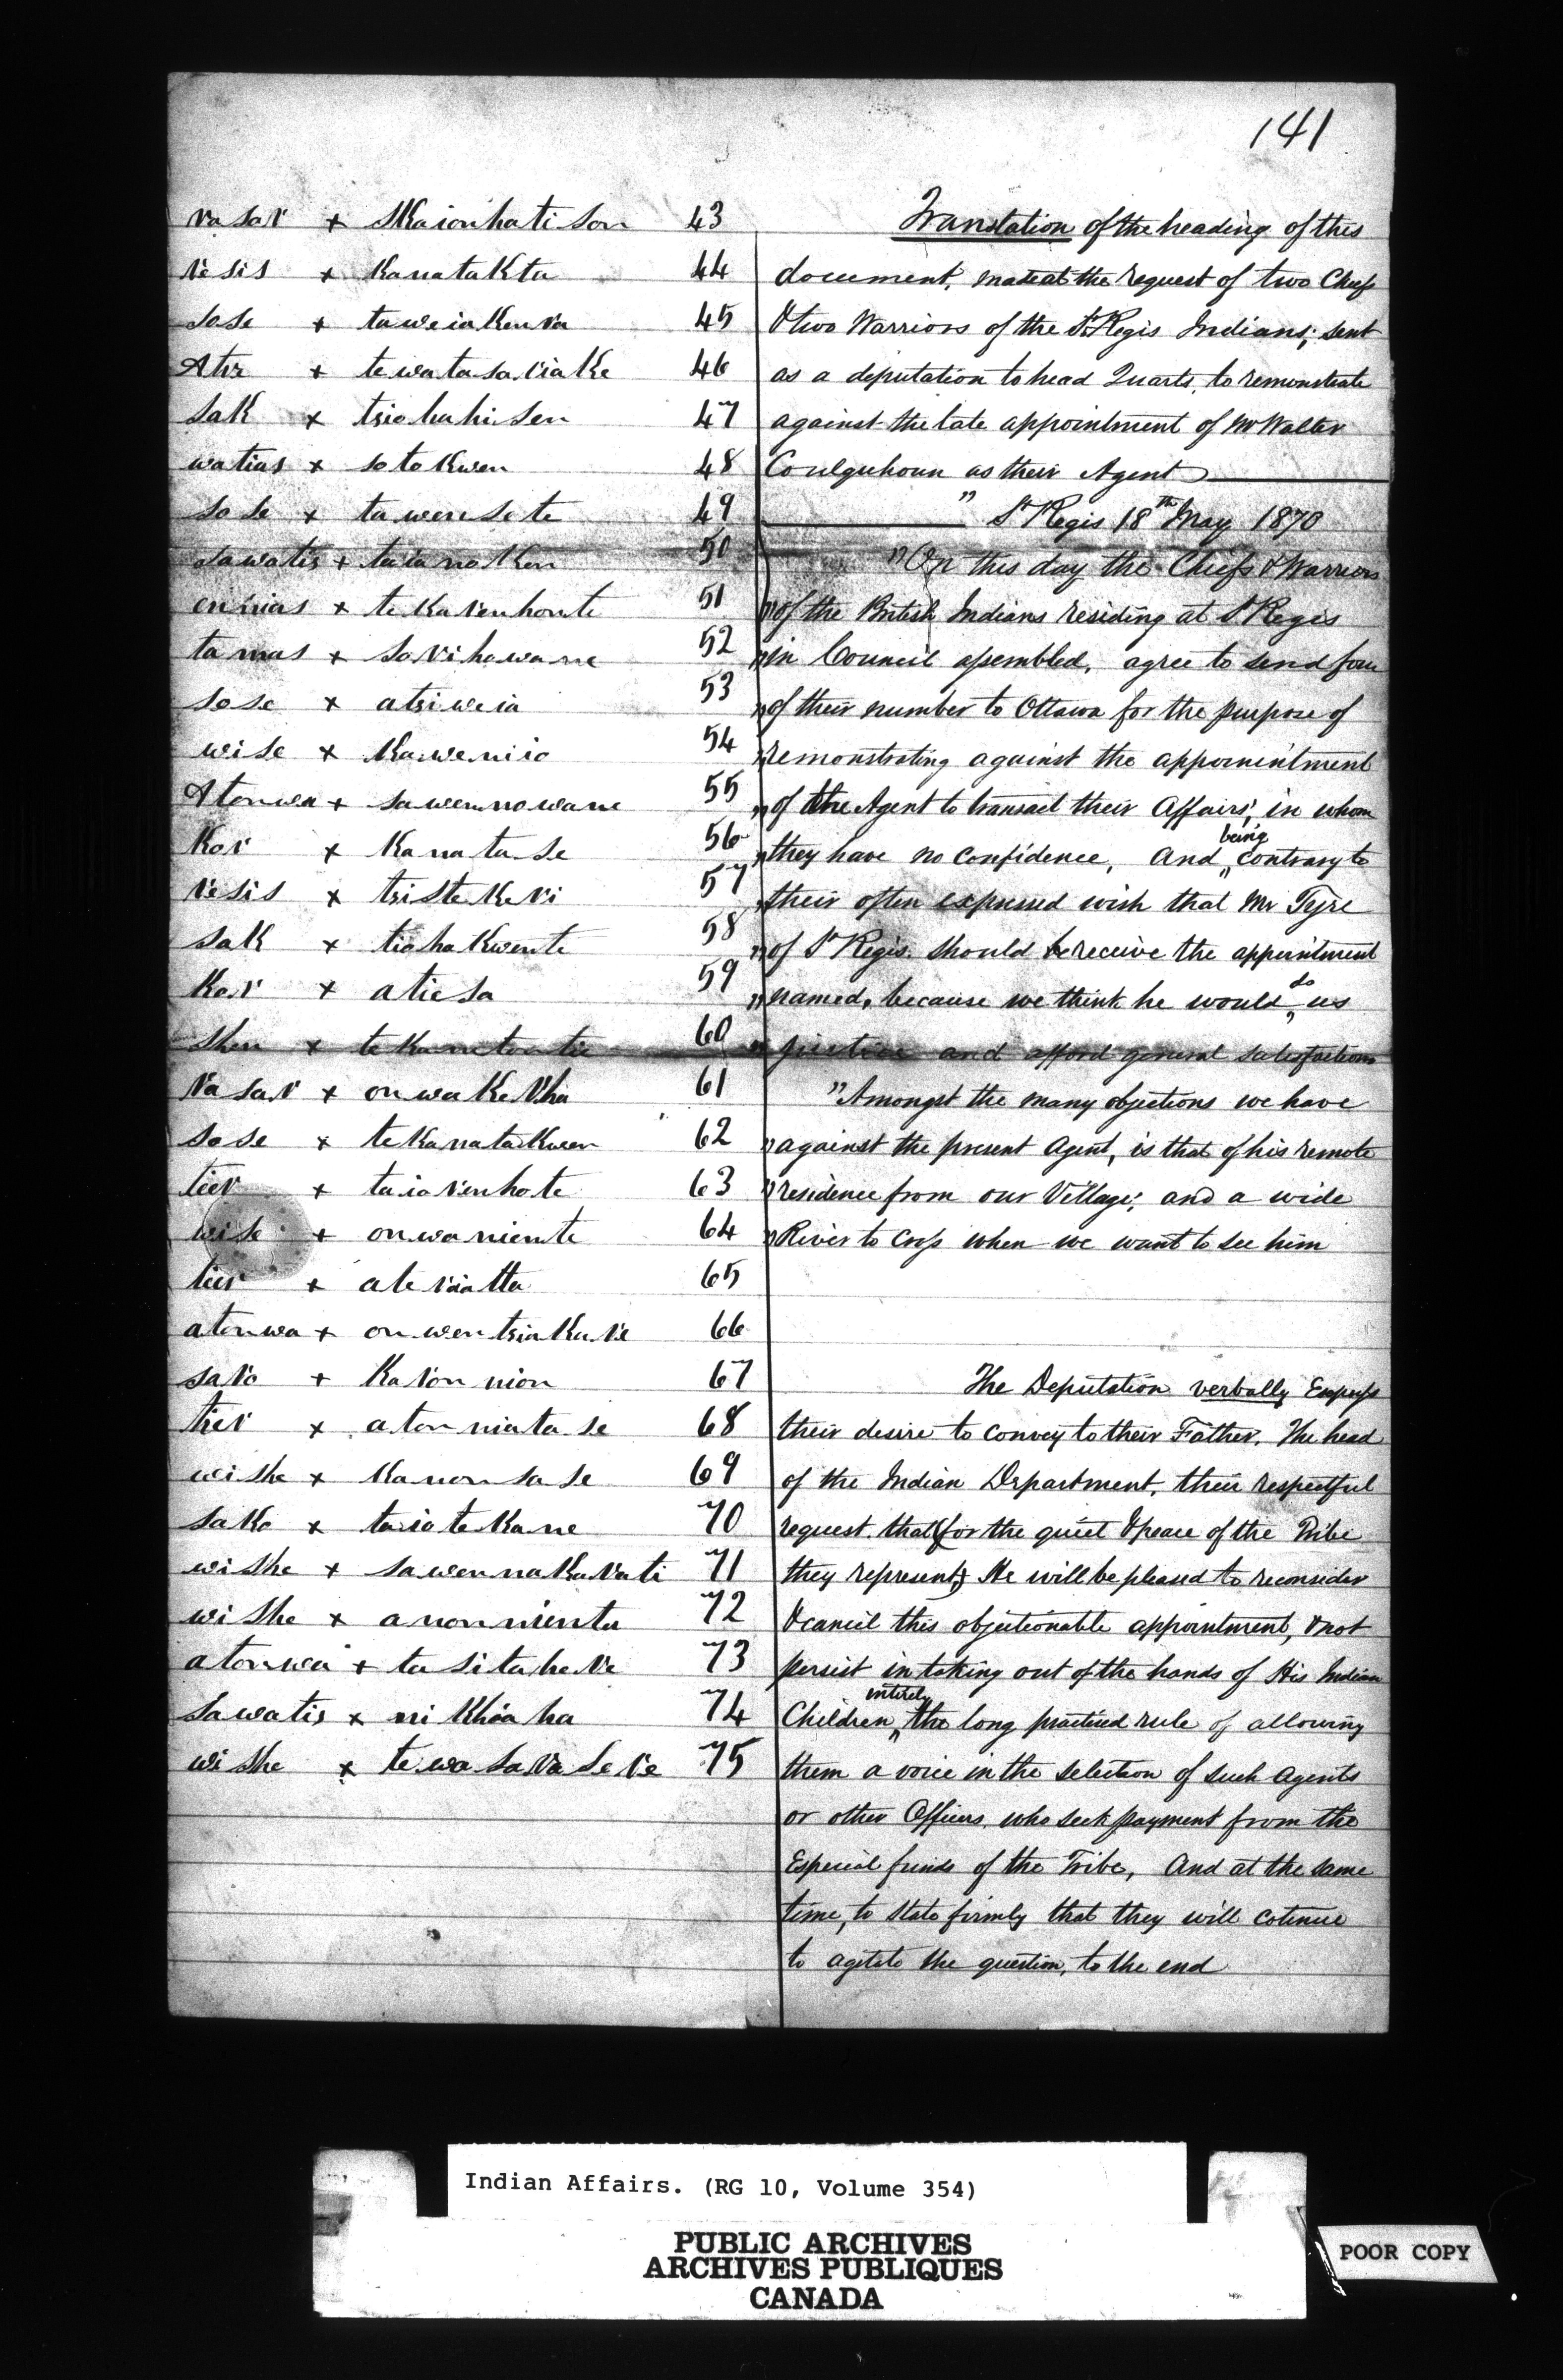 141
rasar + skaionhati son 43
resis + kanatakta 44
sose + taweiakenra 45
Atir + tewatasariake 46
sak + tsiohahisen 47
watias + sotokwen 48
sose + tawensete 49
sawatis + taianoken 50
ennias + tekarenhonte 51
tamas + sorihowane 52
sose + atsiweia 53
wise + kaweniio 54
Atonwa + sawennowane 55
Kor + Kanatase 56
resis + tsistekeri 57
sak + tiohakwente 58
Kor + atiesa 59
60
rasar + onwakerha 61
sose + tekanatakwen 62
tier + taiorenhote 63
wise + onwaniente 64
tier + ateriatta 65
atonwa + onwentsiakare 66
saro + Karonnion 67
tier + atonniatase 68
wishe + Kanonsase 69
sako + taiotekane 70
wishe + sawennakarati 71
wishe + anonnienta 72
atonwa + tasitahere 73
sawatis + nikhoaha 74
wishe + tewasarasere 75
Translation of the heading of this
document, made at the request of two Chiefs
& two Warriors of the St Regis Indians, sent
as a deputation to head Quarts, to remonstrate
against the late appointment of Mr Walter
Coulquhoun as their Agent
" St Regis 18th May 1870
"On this day the Chiefs & Warriors
" of the British Indians residing at St Regis
" in Council assembled, agree to send four
" of their number to Ottawa for the purpose of
" remonstrating against the appointment
" of the Agent to transact their Affairs, in whom
" they have no confidence, And being contrary to
" their often expressed wish that Mr Tyre
" of St Regis should receive the appointment
" named, because we think he would do us
" justice and afford general satisfaction
" Amongst the many objections we have
" against the present Agent, is that of his remote
" residence from our Village; and a wide
" River to cross when we want to see him
The Deputation verbally Express
their desire to convey to their Father, The head
of the Indian Department, their respectful
request that (for the quiet & peace of the Tribe
they represent) He will be pleased to reconsider
& cancel this objectionable appointment, & not
persist in taking out of the hands of His Indian
Children entirely the long practised rule of allowing
them a voice in the selection of such Agents
or other Officers, who seek payment from the
Especial funds of the Tribe, And at the same
time, to state firmly that they will cotinue
to agitate the question, to the end
Indian Affairs. (RG 10, Volume 354)
PUBLIC ARCHIVES
ARCHIVES PUBLIQUES
CANADA
POOR COPY